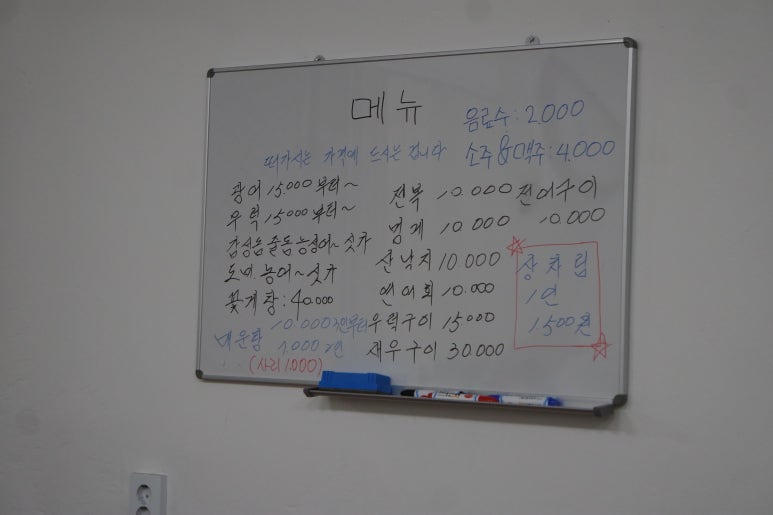 메뉴
음료수: 2.000
떠가시는 가격에 드시는 겁니다
소주&맥주: 4.000
광어 15.000부터~
우럭 15000부터~
감성돔 줄돔 농성어~싯가
도미. 농어~싯가
꽃게탕: 40.000
매운탕 10.000 3인부터
7.000 2인
(사리 1.000)
전복 10.000
멍게 10.000
산낙지 10.000
연어회 10.000
우럭구이 15000
새우구이 30.000
전어구이
10.000
상차림
1인
1.500원